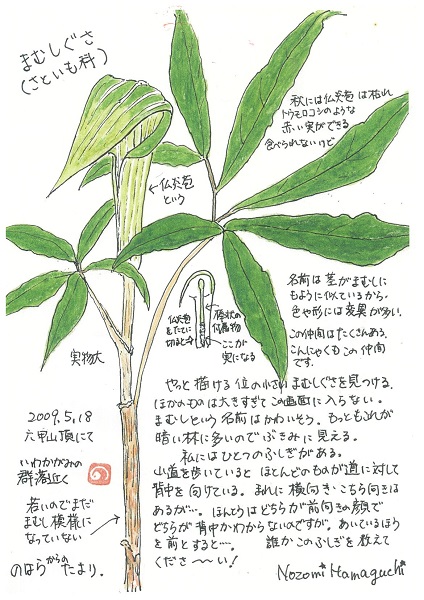 まむしぐさ
(さといも科)
秋には仏炎苞は枯れ
トウモロコシのような
赤い実ができる
食べられないけど
←仏炎苞
という
名前は茎がまむしに
もように似ているから。
色や形には変異が多い。
この仲間はたくさんある。
こんにゃくもこの仲間
です。
仏炎苞
をたてに
切ると→
棒状の
付属物
ここが
実になる
実物大
やっと描ける位の小さいまむしぐさを見つける。
ほかのものは大きすぎてこの画面に入らない。
まむしという名前はかわいそう。もっともこれが
暗い林に多いのでぶきみに見える。
私にはひとつのふしぎがある。
山道を歩いているとほとんどのものが道に対して
背中を向けている。まれに横向き・こちら向きは
あるが…。ほんとうはどちらが前向きの顔で
どちらが背中かわからないのですが。あいているほう
を前とすると…。 誰かこのふしぎを教えて
くださ〜い!
2009.5.18
六甲山頂にて
いわかがみの
群落近く
若いのでまだ
まむし模様に
なっていない
のはらからのたより.
Nozomi Hamaguchi